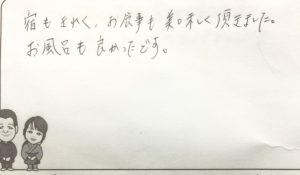 宿もきれく、お食事も美味しく頂きました。
お風呂も良かったです。